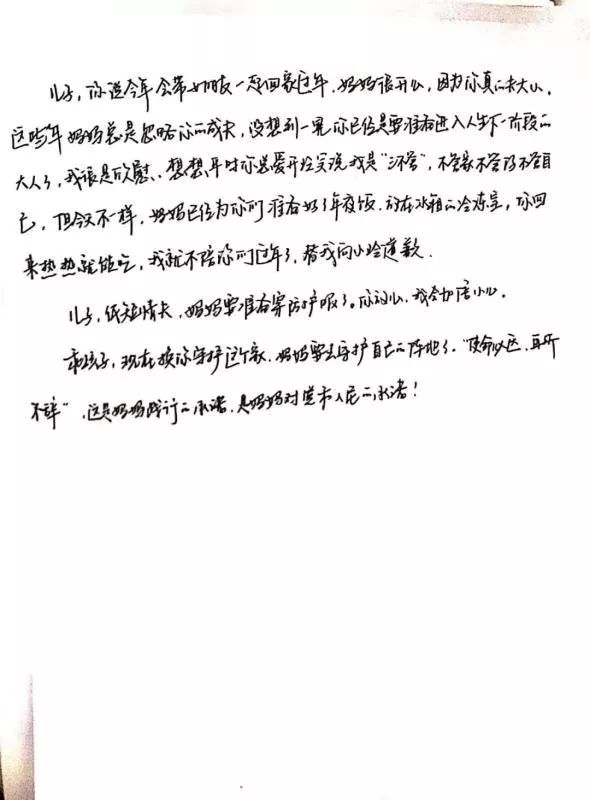 儿子，你说今年会带女朋友一起回家过年，妈妈很开心，因为你真的长大了。
这些年妈妈总是忽略你的成长，没想到一晃你已经是要准备进入人生下一阶段的
大人了，我很是欣慰。想想平时你总爱开玩笑说我是“三不管”，不管家不管你不管自
己，但今天不一样，妈妈已经为你们准备好了年夜饭，放在冰箱的冷冻室，你回
来热热就能吃，我就不陪你们过年了，替我向小玲道歉。
儿子，纸短情长，妈妈要准备穿防护服了。你放心，我会加倍小心。
乖孩子，现在换你守护这个家，妈妈要去守护自己的阵地了。“使命必达，再所
不辞”，这是妈妈践行的承诺，是妈妈对党和人民的承诺！